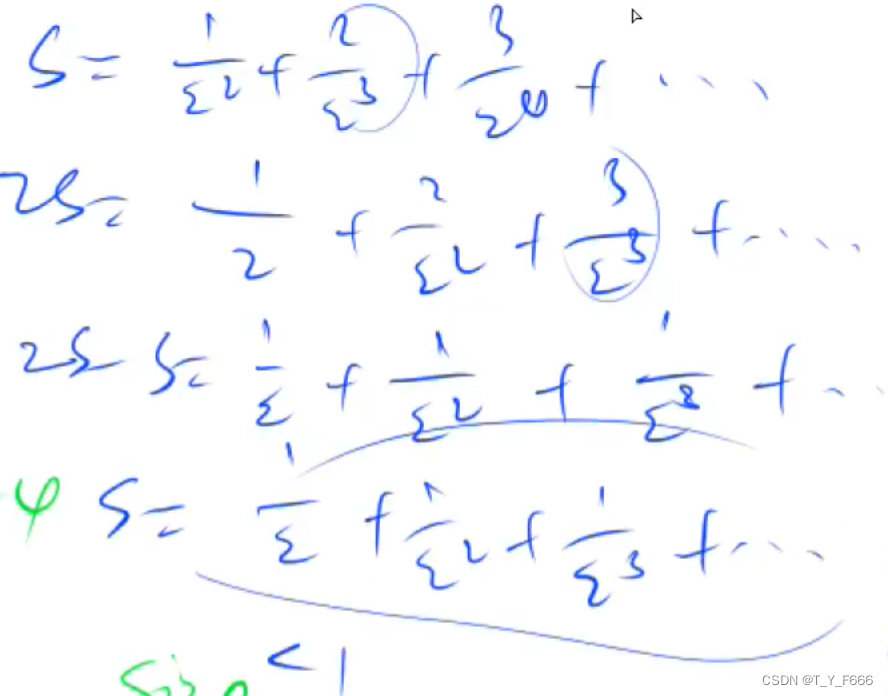 S = 1/2² + 2/2³ + 3/2⁴ + ...
2S = 1/2 + 2/2² + 3/2³ + ....
2S S = 1/2 + 1/2² + 1/2³ + ..
4 S = 1/2 + 1/2² + 1/2³ + ...
size < 1
CSDN @T_Y_F666